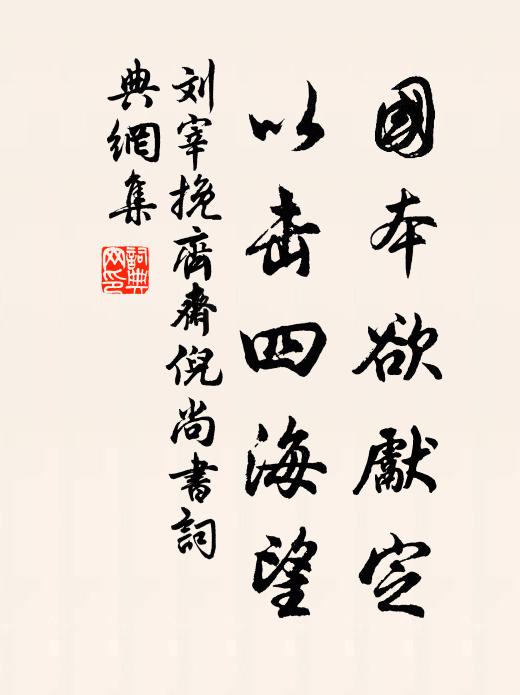 國本欲獻定
以击四海望
刘宰挽齊齋倪尚書詞
典網集
詞典
网印